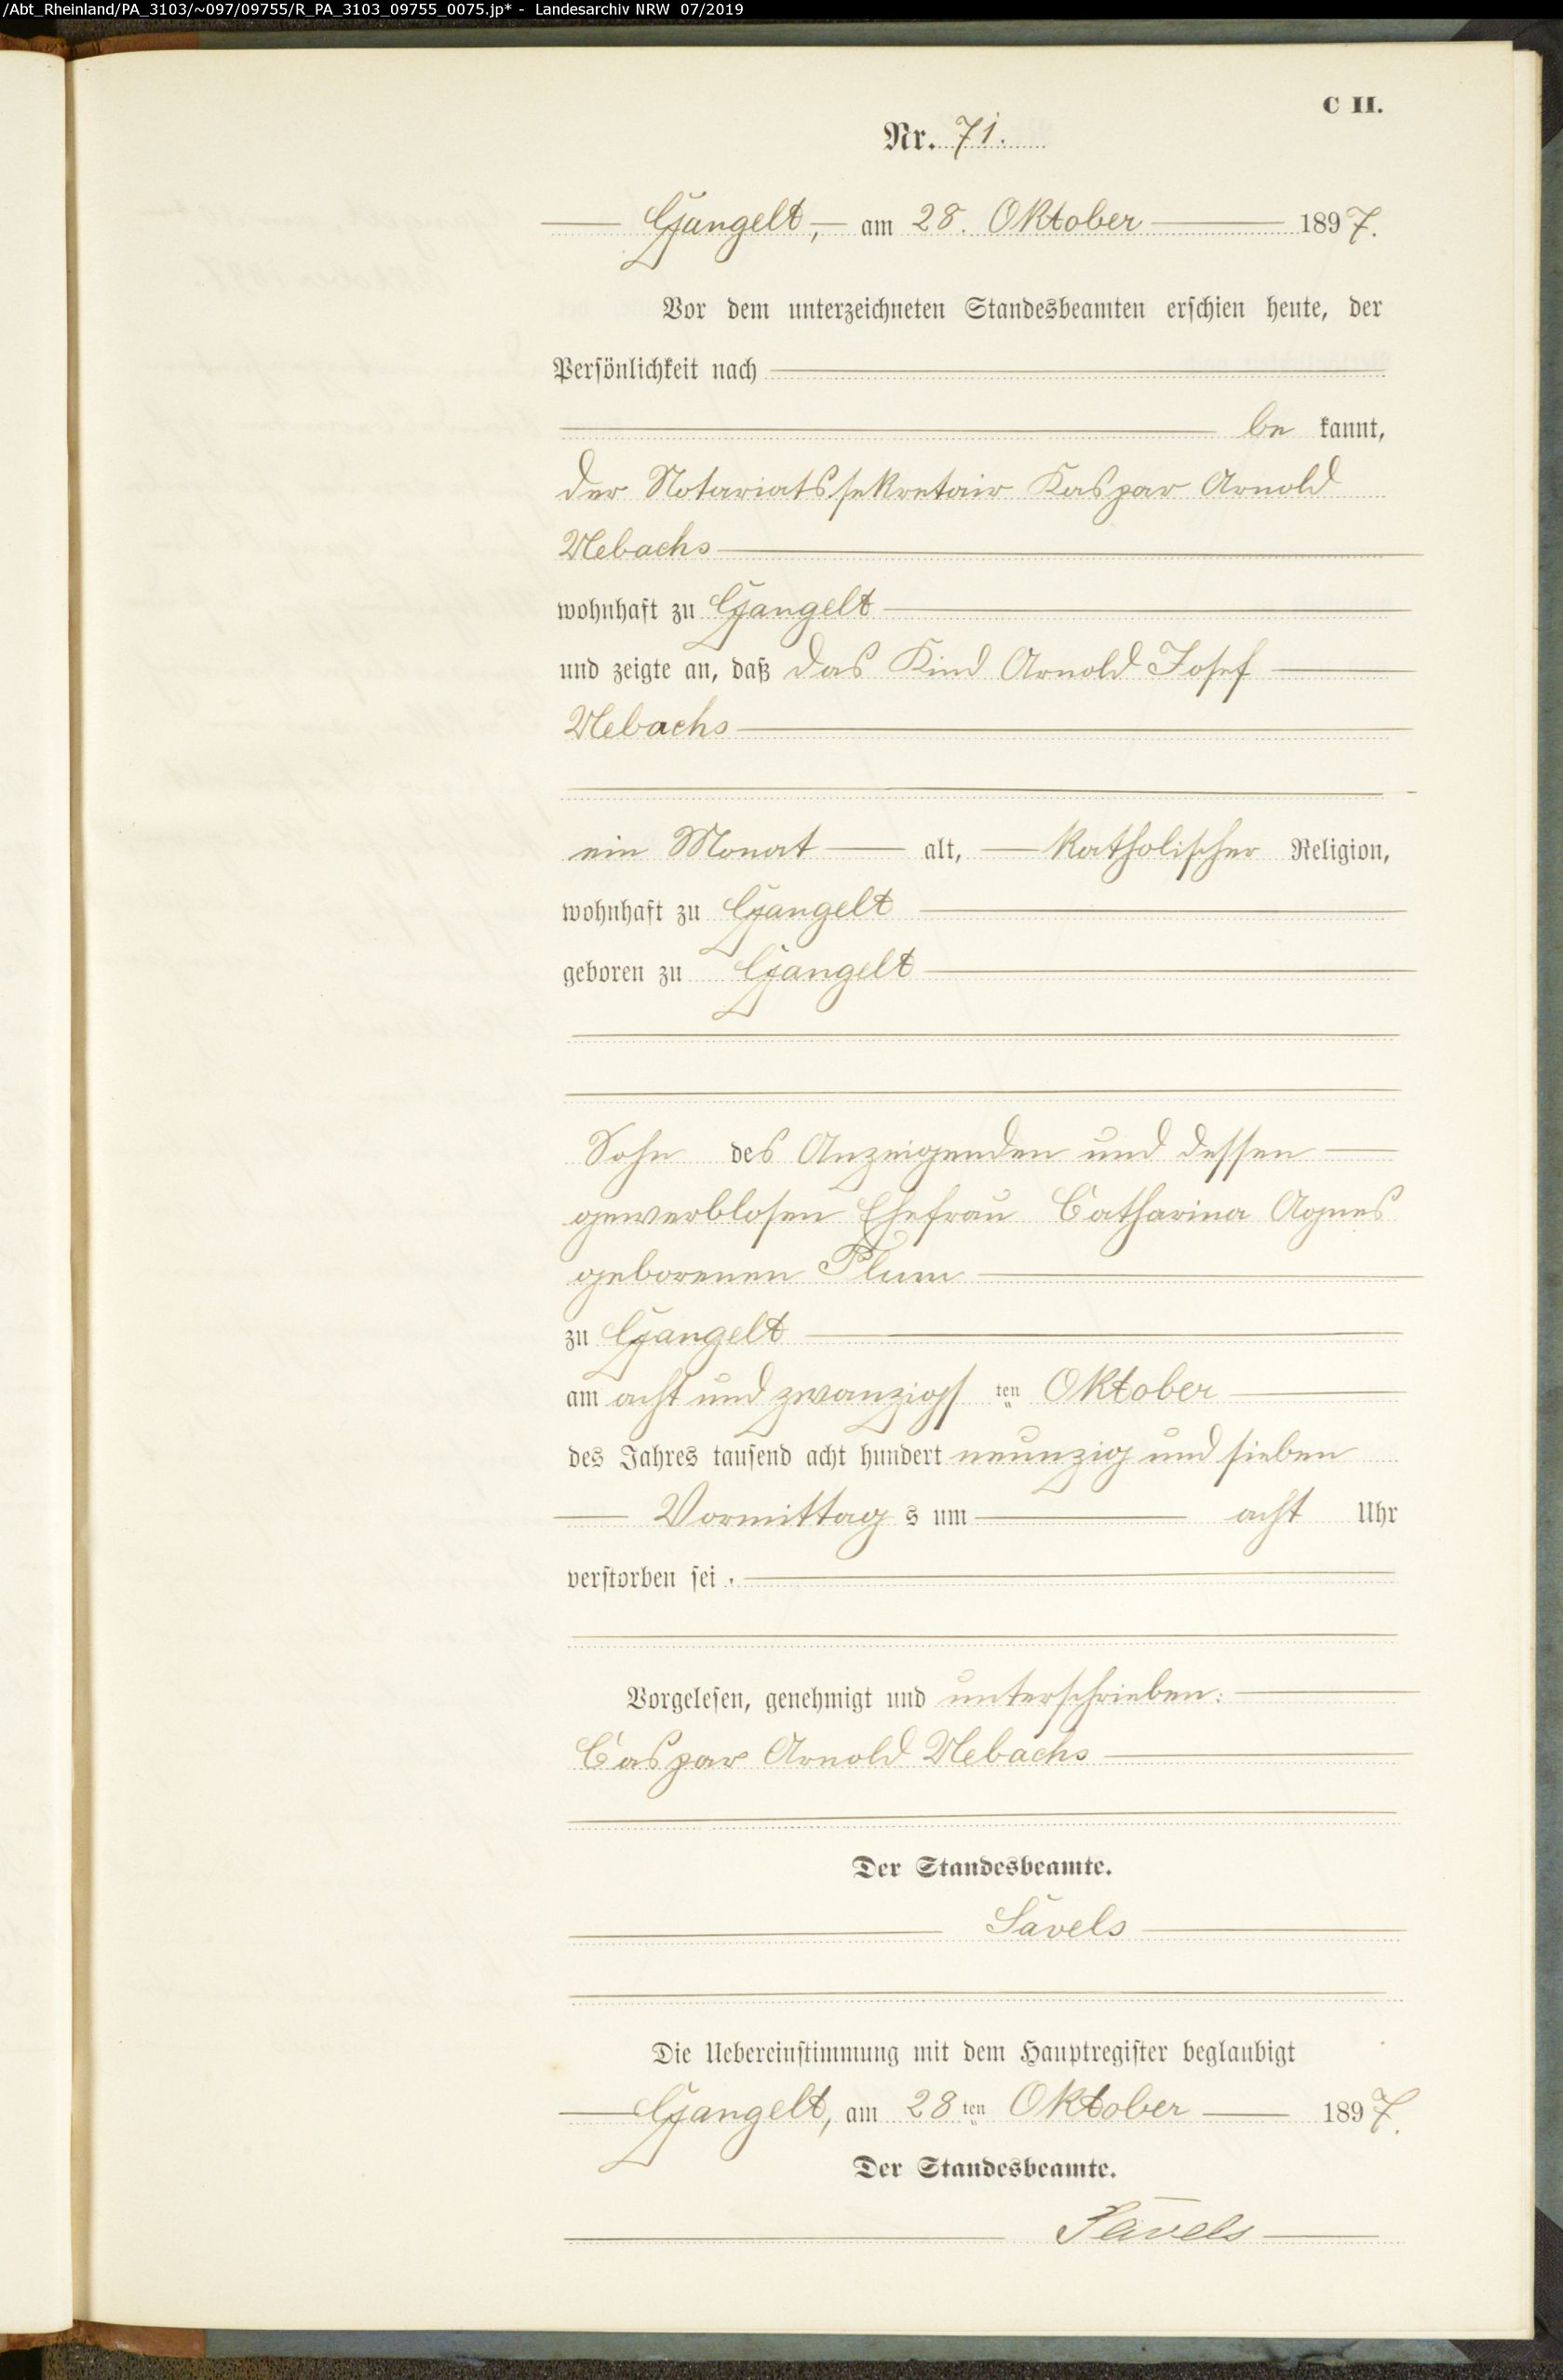 /Abt_Rheinland/PA_3103/~097/09755/R_PA_3103_09755_0075.jp* - Landesarchiv NRW 07/2019
C II.
Nr. 71.
Gangelt, am 28. Oktober 1897.
Vor dem unterzeichneten Standesbeamten erschien heute, der
Persönlichkeit nach
be kannt,
der Notariatssekretair Kaspar Arnold
Uebachs
wohnhaft zu Gangelt
und zeigte an, daß das Kind Arnold Josef
Uebachs
ein Monat alt, katholischer Religion,
wohnhaft zu Gangelt
geboren zu Gangelt
Sohn des Anzeigenden und dessen
gewerblosen Ehefrau Catharina Agnes
geborenen Plum
zu Gangelt
am acht und zwanzigs ten Oktober
des Jahres tausend acht hundert neunzig und sieben
Vormittag s um acht Uhr
verstorben sei.
Vorgelesen, genehmigt und unterschrieben:
Caspar Arnold Uebachs
Der Standesbeamte.
Savels
Die Uebereinstimmung mit dem Hauptregister beglaubigt
Gangelt, am 28 ten Oktober 1897.
Der Standesbeamte.
Savels